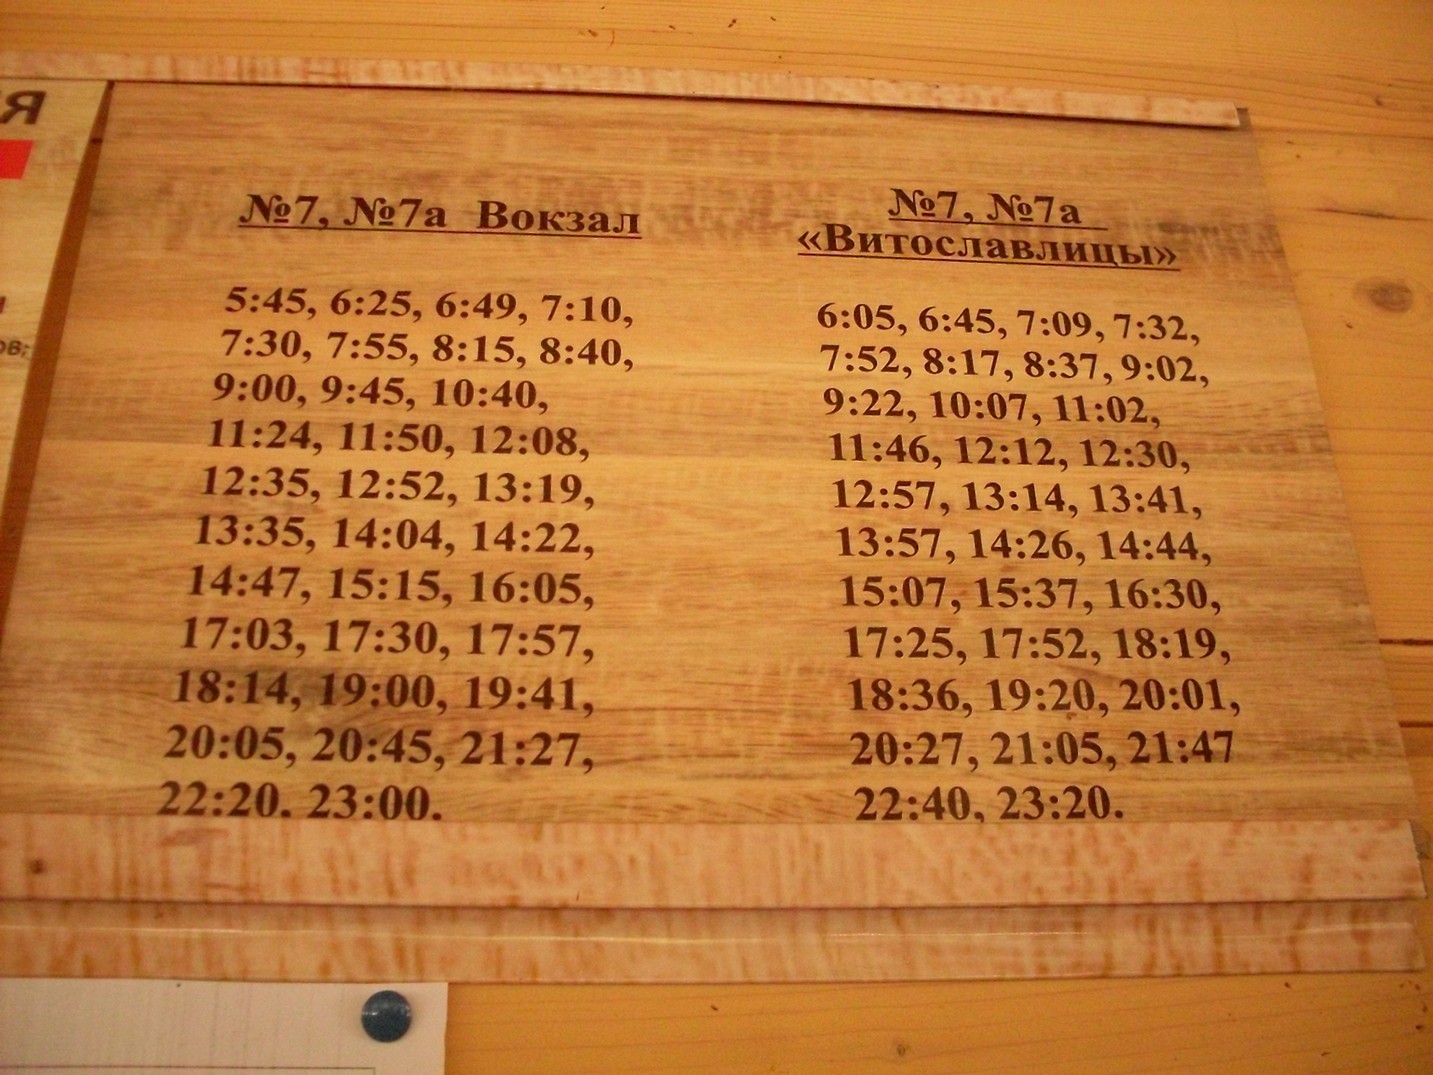 Я
№7, №7а Вокзал
5:45, 6:25, 6:49, 7:10,
7:30, 7:55, 8:15, 8:40,
9:00, 9:45, 10:40,
11:24, 11:50, 12:08,
12:35, 12:52, 13:19,
13:35, 14:04, 14:22,
14:47, 15:15, 16:05,
17:03, 17:30, 17:57,
18:14, 19:00, 19:41,
20:05, 20:45, 21:27,
22:20. 23:00.
№7, №7а
«Витославлицы»
6:05, 6:45, 7:09, 7:32,
7:52, 8:17, 8:37, 9:02,
9:22, 10:07, 11:02,
11:46, 12:12, 12:30,
12:57, 13:14, 13:41,
13:57, 14:26, 14:44,
15:07, 15:37, 16:30,
17:25, 17:52, 18:19,
18:36, 19:20, 20:01,
20:27, 21:05, 21:47
22:40, 23:20.